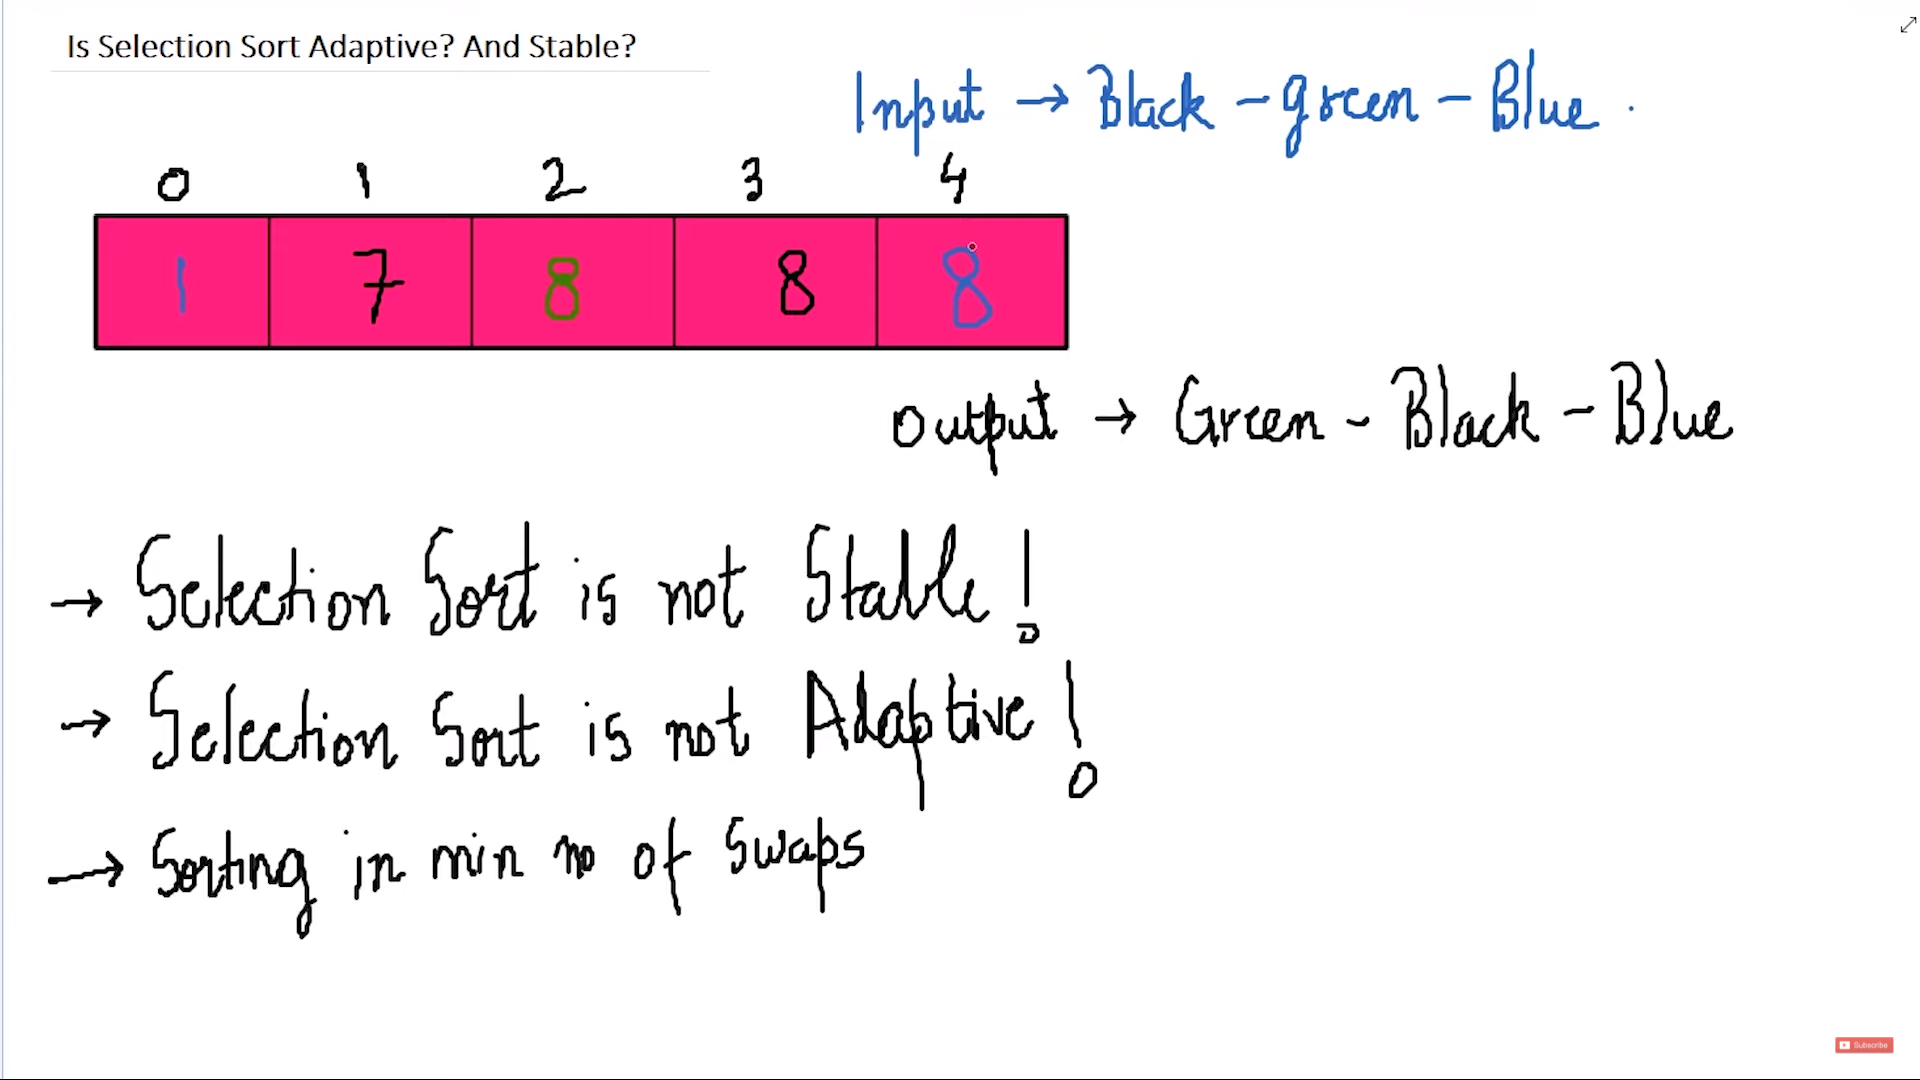 Is Selection Sort Adaptive? And Stable?
Input → Black - green - Blue .
0 1 2 3 4
1 7 8 8 8
Output → Green - Black - Blue
→ Selection Sort is not Stable!
→ Selection Sort is not Adaptive!
→ Sorting in min no of Swaps
Subscribe